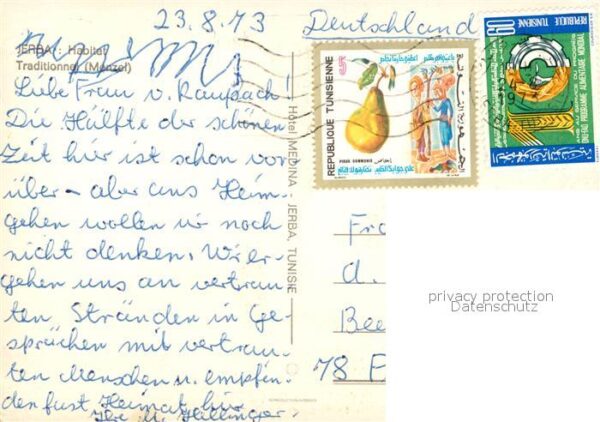 23.8.73 Deutschland
JERBA : Habitat
Traditionnel (Menzel)
Liebe Frau v. Raussach!
Die Hälfte der schönen
Zeit hier ist schon vor
über - aber ans Heim-
gehen wollen wir noch
nicht denken. Wir er-
gehen uns an vertrau-
ten Stränden in Ge-
sprächen mit vertrau-
ten Menschen u. empfin-
den fast Heimat hier.
Ihr
Hôtel MEDINA JERBA, TUNISIE
5
REPUBLIQUE TUNISIENNE
POIRE COMMUNE
60
REPUBLIQUE TUNISIENNE
ONU-FAO PROGRAMME ALIMENTAIRE MONDIAL
Fr
d.
Bee
78 F
privacy protection
Datenschutz